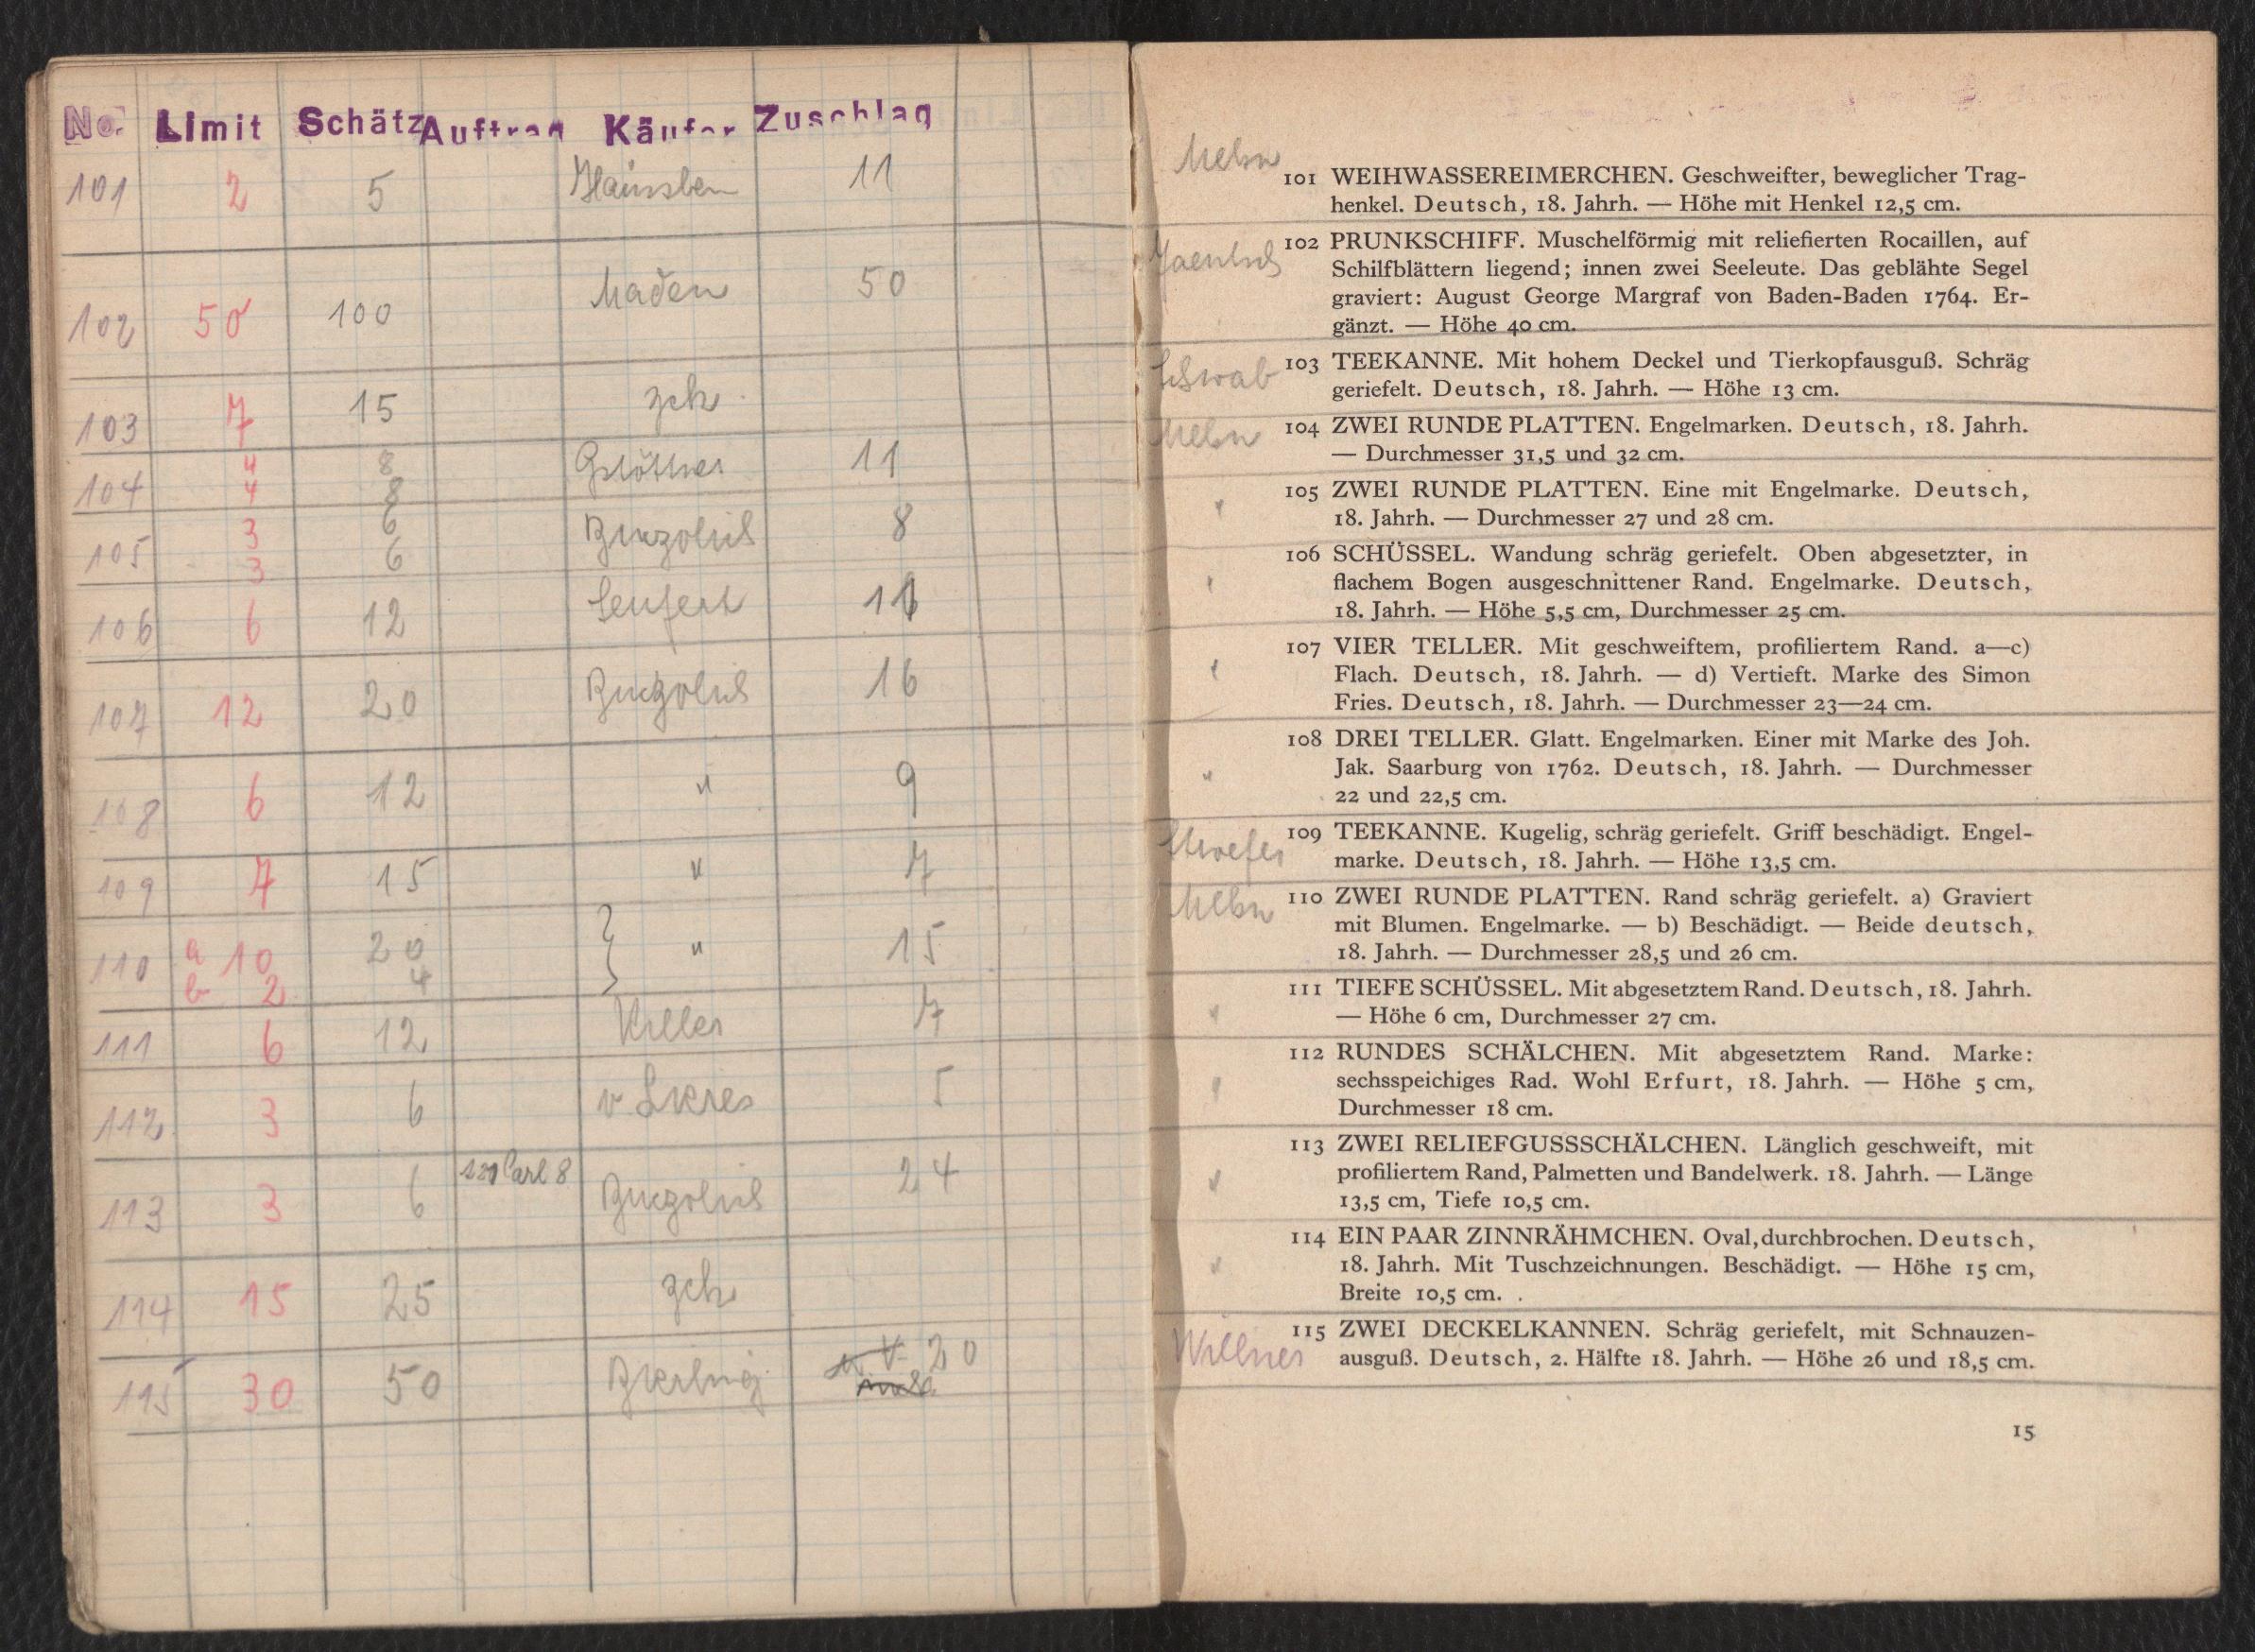 No. Limit Schätz Auftrag Käufer Zuschlag
101 2 5 11
102 50 100 Mader 50
103 7 15 zck
104 4 8 11
4 8
105 3 6 8
3 6
106 6 12 Seufert
107 12 20 16
108 6 12 " 9
109 7 15 " 7
110 a 10 20 } " 15
b 2 4
111 6 12 7
112 3 6 5
113 3 6 8 24
114 15 25 zck
115 30 50 20
101 WEIHWASSEREIMERCHEN. Geschweifter, beweglicher Trag-
henkel. Deutsch, 18. Jahrh. — Höhe mit Henkel 12,5 cm.
102 PRUNKSCHIFF. Muschelförmig mit reliefierten Rocaillen, auf
Schilfblättern liegend; innen zwei Seeleute. Das geblähte Segel
graviert: August George Margraf von Baden-Baden 1764. Er-
gänzt. — Höhe 40 cm.
Schwab 103 TEEKANNE. Mit hohem Deckel und Tierkopfausguß. Schräg
geriefelt. Deutsch, 18. Jahrh. — Höhe 13 cm.
104 ZWEI RUNDE PLATTEN. Engelmarken. Deutsch, 18. Jahrh.
— Durchmesser 31,5 und 32 cm.
" 105 ZWEI RUNDE PLATTEN. Eine mit Engelmarke. Deutsch,
18. Jahrh. — Durchmesser 27 und 28 cm.
" 106 SCHÜSSEL. Wandung schräg geriefelt. Oben abgesetzter, in
flachem Bogen ausgeschnittener Rand. Engelmarke. Deutsch,
18. Jahrh. — Höhe 5,5 cm, Durchmesser 25 cm.
" 107 VIER TELLER. Mit geschweiftem, profiliertem Rand. a—c)
Flach. Deutsch, 18. Jahrh. — d) Vertieft. Marke des Simon
Fries. Deutsch, 18. Jahrh. — Durchmesser 23—24 cm.
" 108 DREI TELLER. Glatt. Engelmarken. Einer mit Marke des Joh.
Jak. Saarburg von 1762. Deutsch, 18. Jahrh. — Durchmesser
22 und 22,5 cm.
109 TEEKANNE. Kugelig, schräg geriefelt. Griff beschädigt. Engel-
marke. Deutsch, 18. Jahrh. — Höhe 13,5 cm.
110 ZWEI RUNDE PLATTEN. Rand schräg geriefelt. a) Graviert
mit Blumen. Engelmarke. — b) Beschädigt. — Beide deutsch,
18. Jahrh. — Durchmesser 28,5 und 26 cm.
" 111 TIEFE SCHÜSSEL. Mit abgesetztem Rand. Deutsch, 18. Jahrh.
— Höhe 6 cm, Durchmesser 27 cm.
" 112 RUNDES SCHÄLCHEN. Mit abgesetztem Rand. Marke:
sechsspeichiges Rad. Wohl Erfurt, 18. Jahrh. — Höhe 5 cm,
Durchmesser 18 cm.
" 113 ZWEI RELIEFGUSSSCHÄLCHEN. Länglich geschweift, mit
profiliertem Rand, Palmetten und Bandelwerk. 18. Jahrh. — Länge
13,5 cm, Tiefe 10,5 cm.
" 114 EIN PAAR ZINNRÄHMCHEN. Oval, durchbrochen. Deutsch,
18. Jahrh. Mit Tuschzeichnungen. Beschädigt. — Höhe 15 cm,
Breite 10,5 cm.
Willner 115 ZWEI DECKELKANNEN. Schräg geriefelt, mit Schnauzen-
ausguß. Deutsch, 2. Hälfte 18. Jahrh. — Höhe 26 und 18,5 cm.
15